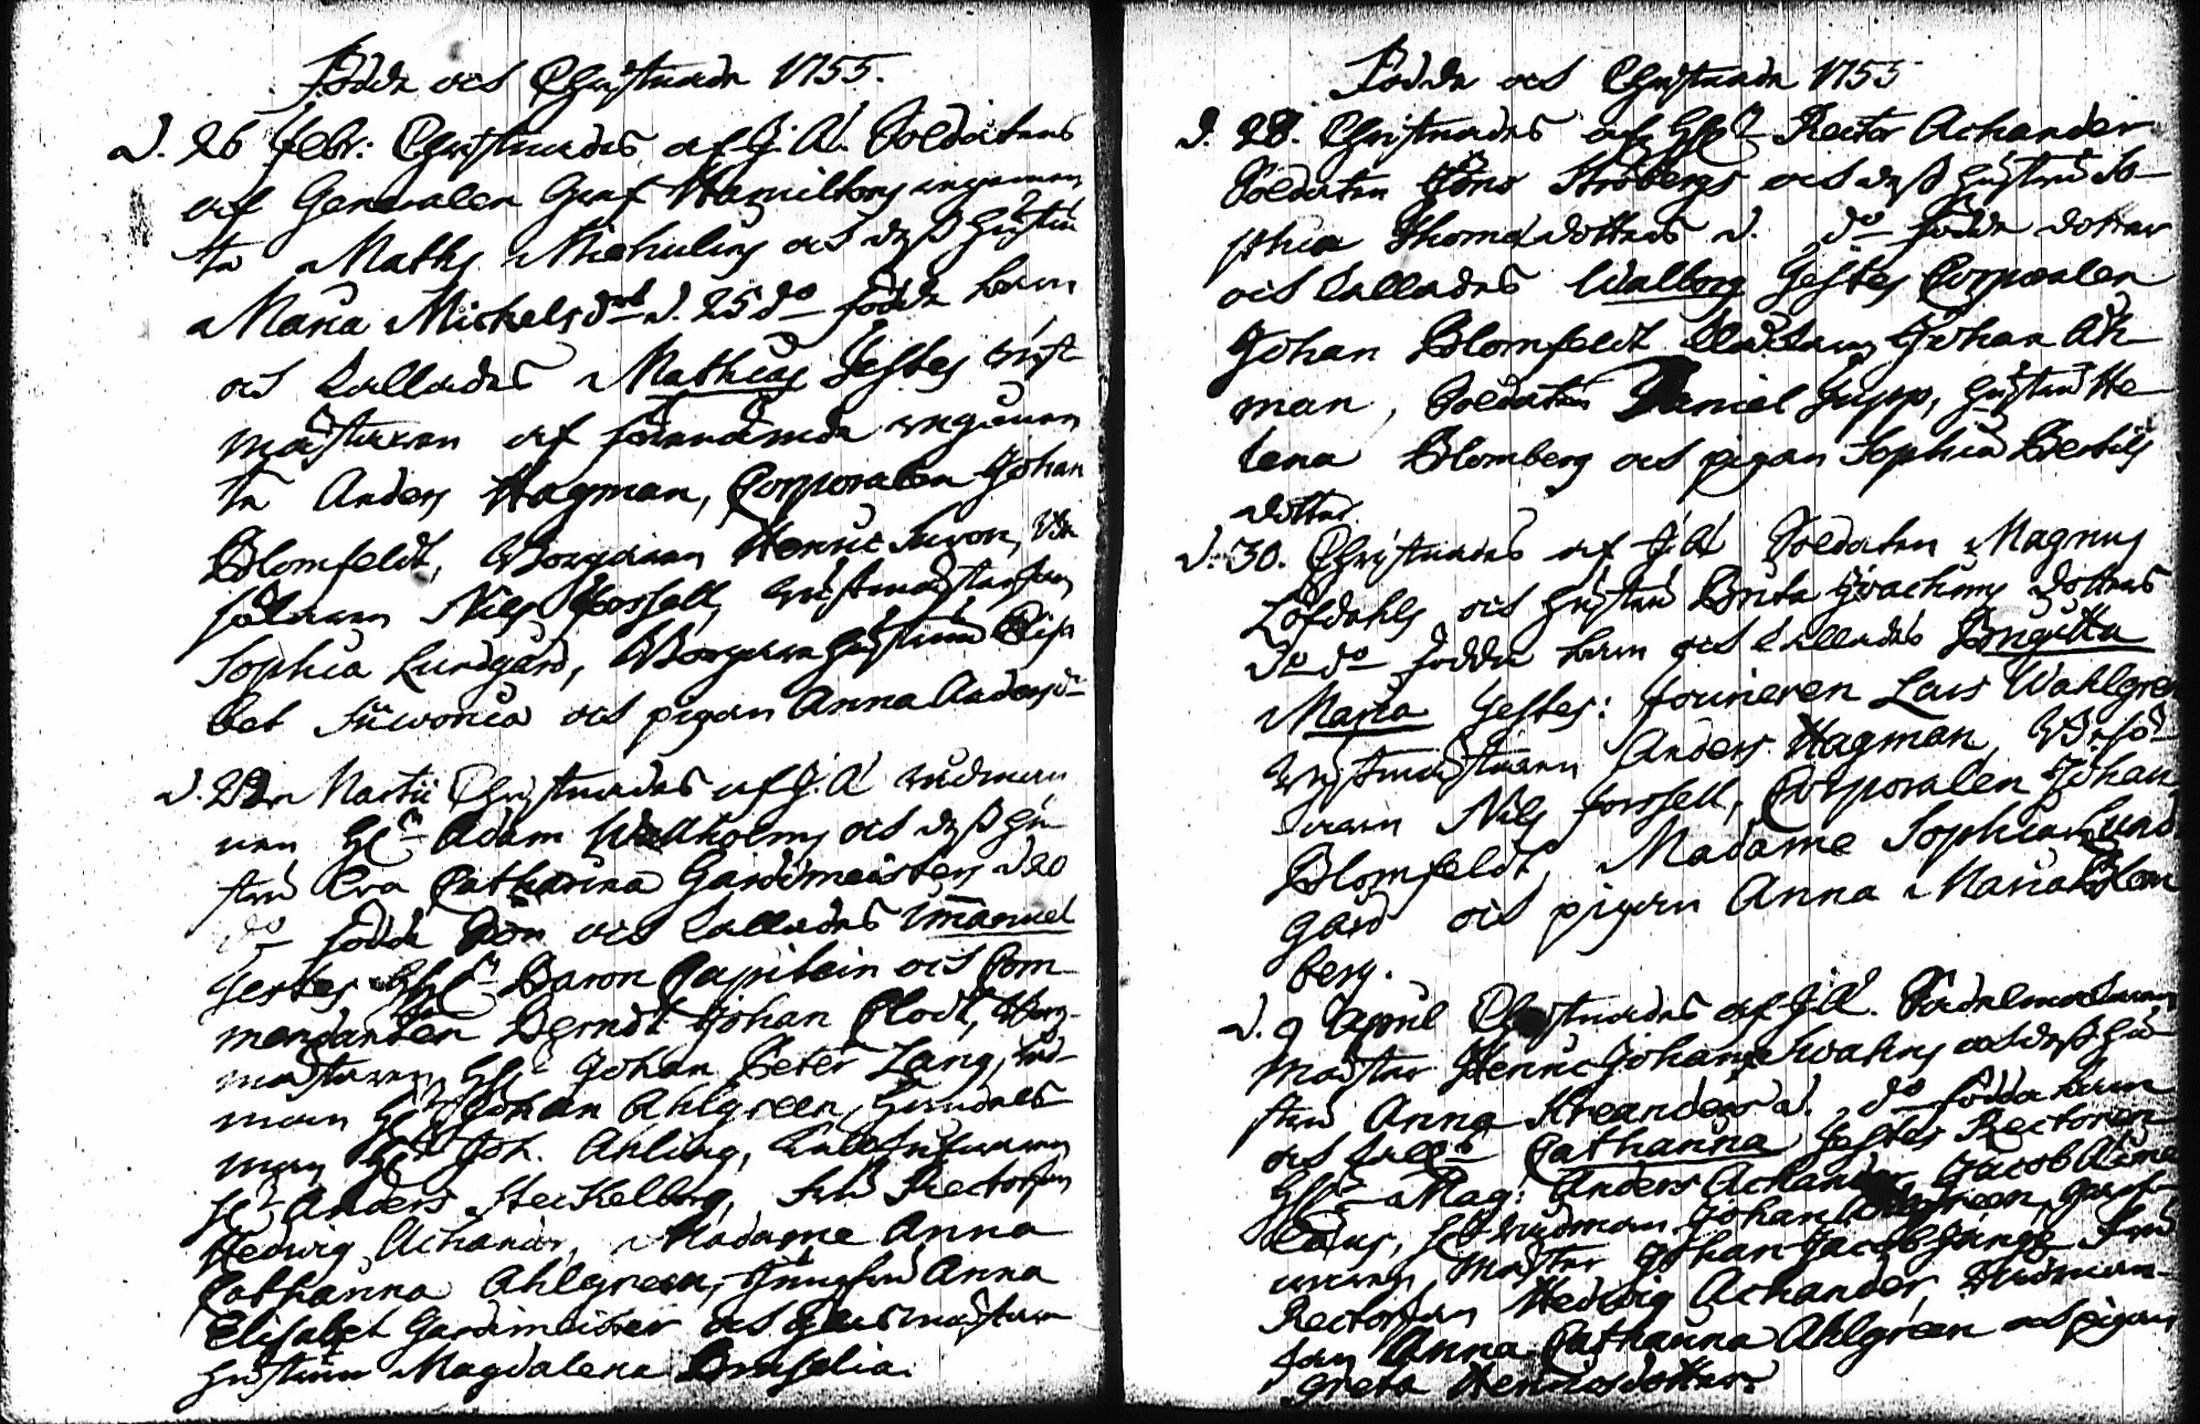 Födde och Christnade 1755.
d. 26 Febr: Christnades af J. A. Soldatens
af Generalen Gref Hamiltons regemen
te Maths Michulins och dess hustru
Maria Michelsdotr d. 25 do födde barn
och kallades Mathias Testes rust-
mästaren af förenämde regemen
te Anders Hagman, Corporalen Johan
Blomfeldt, Borgaren Henric Suvon,
Nils Forssell, rustmästarfrun
Sophia Lundgård, Borgare hustrun Elisa
bet Suvonia och pigan Anna Andersd-
d. 22 Martii Christnades af J. A rådman
nen Hr Adam Wallholms och dess hu
stru Eva Catharina Gardemeisters d 20
do födde Son och kallades Imanuel
Testes Baron Capitein och Com-
mendanten Berndt Johan Clodt,
mästaren Johan Peter Lang, råd-
man Hr Johan Ahlgreen, Handels-
man Hr Joh. Ahling,
Hr Anders Steckelberg, Fru Rectorskan
Hedwig Achander, Madame Anna
Catharina Ahlgreen, Jungfru Anna
Elisabet Gardemeister och Glasmästare
hustrun Magdalena Bruselia.
Födde och Christnade 1755
d. 28. Christnades af Rector Achander
Soldaten Jöns Ströbergs och dess hustru So-
phia Thomædotters d. do födde dotter
och kallades Walborg Testes Corporalen
Johan Blomfeldt Johan Åk-
man, Soldaten Daniel Jupp, hustru He
lena Blomberg och pigan Sophia Bertils
dotter.
d. 30. Christnades af J. A Soldaten Magnus
Löfdahls och hustru Brita Joachims dotters
do do födda barn och kallades Brigitta
Maria Testes: Foureren Lars Wahlgren
rustmästaren Anders Hagman,
Nils Forssell, Corporalen Johan
Blomfeldt, Madame Sophia Lund
gård och pigan Anna Maria Blom
berg.
d. 9 April Christnades af J. A. Sadelmakaren
Mäster Henric Johan Swahns och dess hu
stru Anna Kreanders d. do födda barn
och kalls Catharina Testes Rectoren
Mag: Anders Achander, Jacob
Hr rådman Johan Ahlgreen, garf-
waren Mäster Johan Jacob Fru
Rectorskan Hedwig Achander, Rådman-
skan Anna Catharina Ahlgreen och pigan
Greta Henricsdotter.